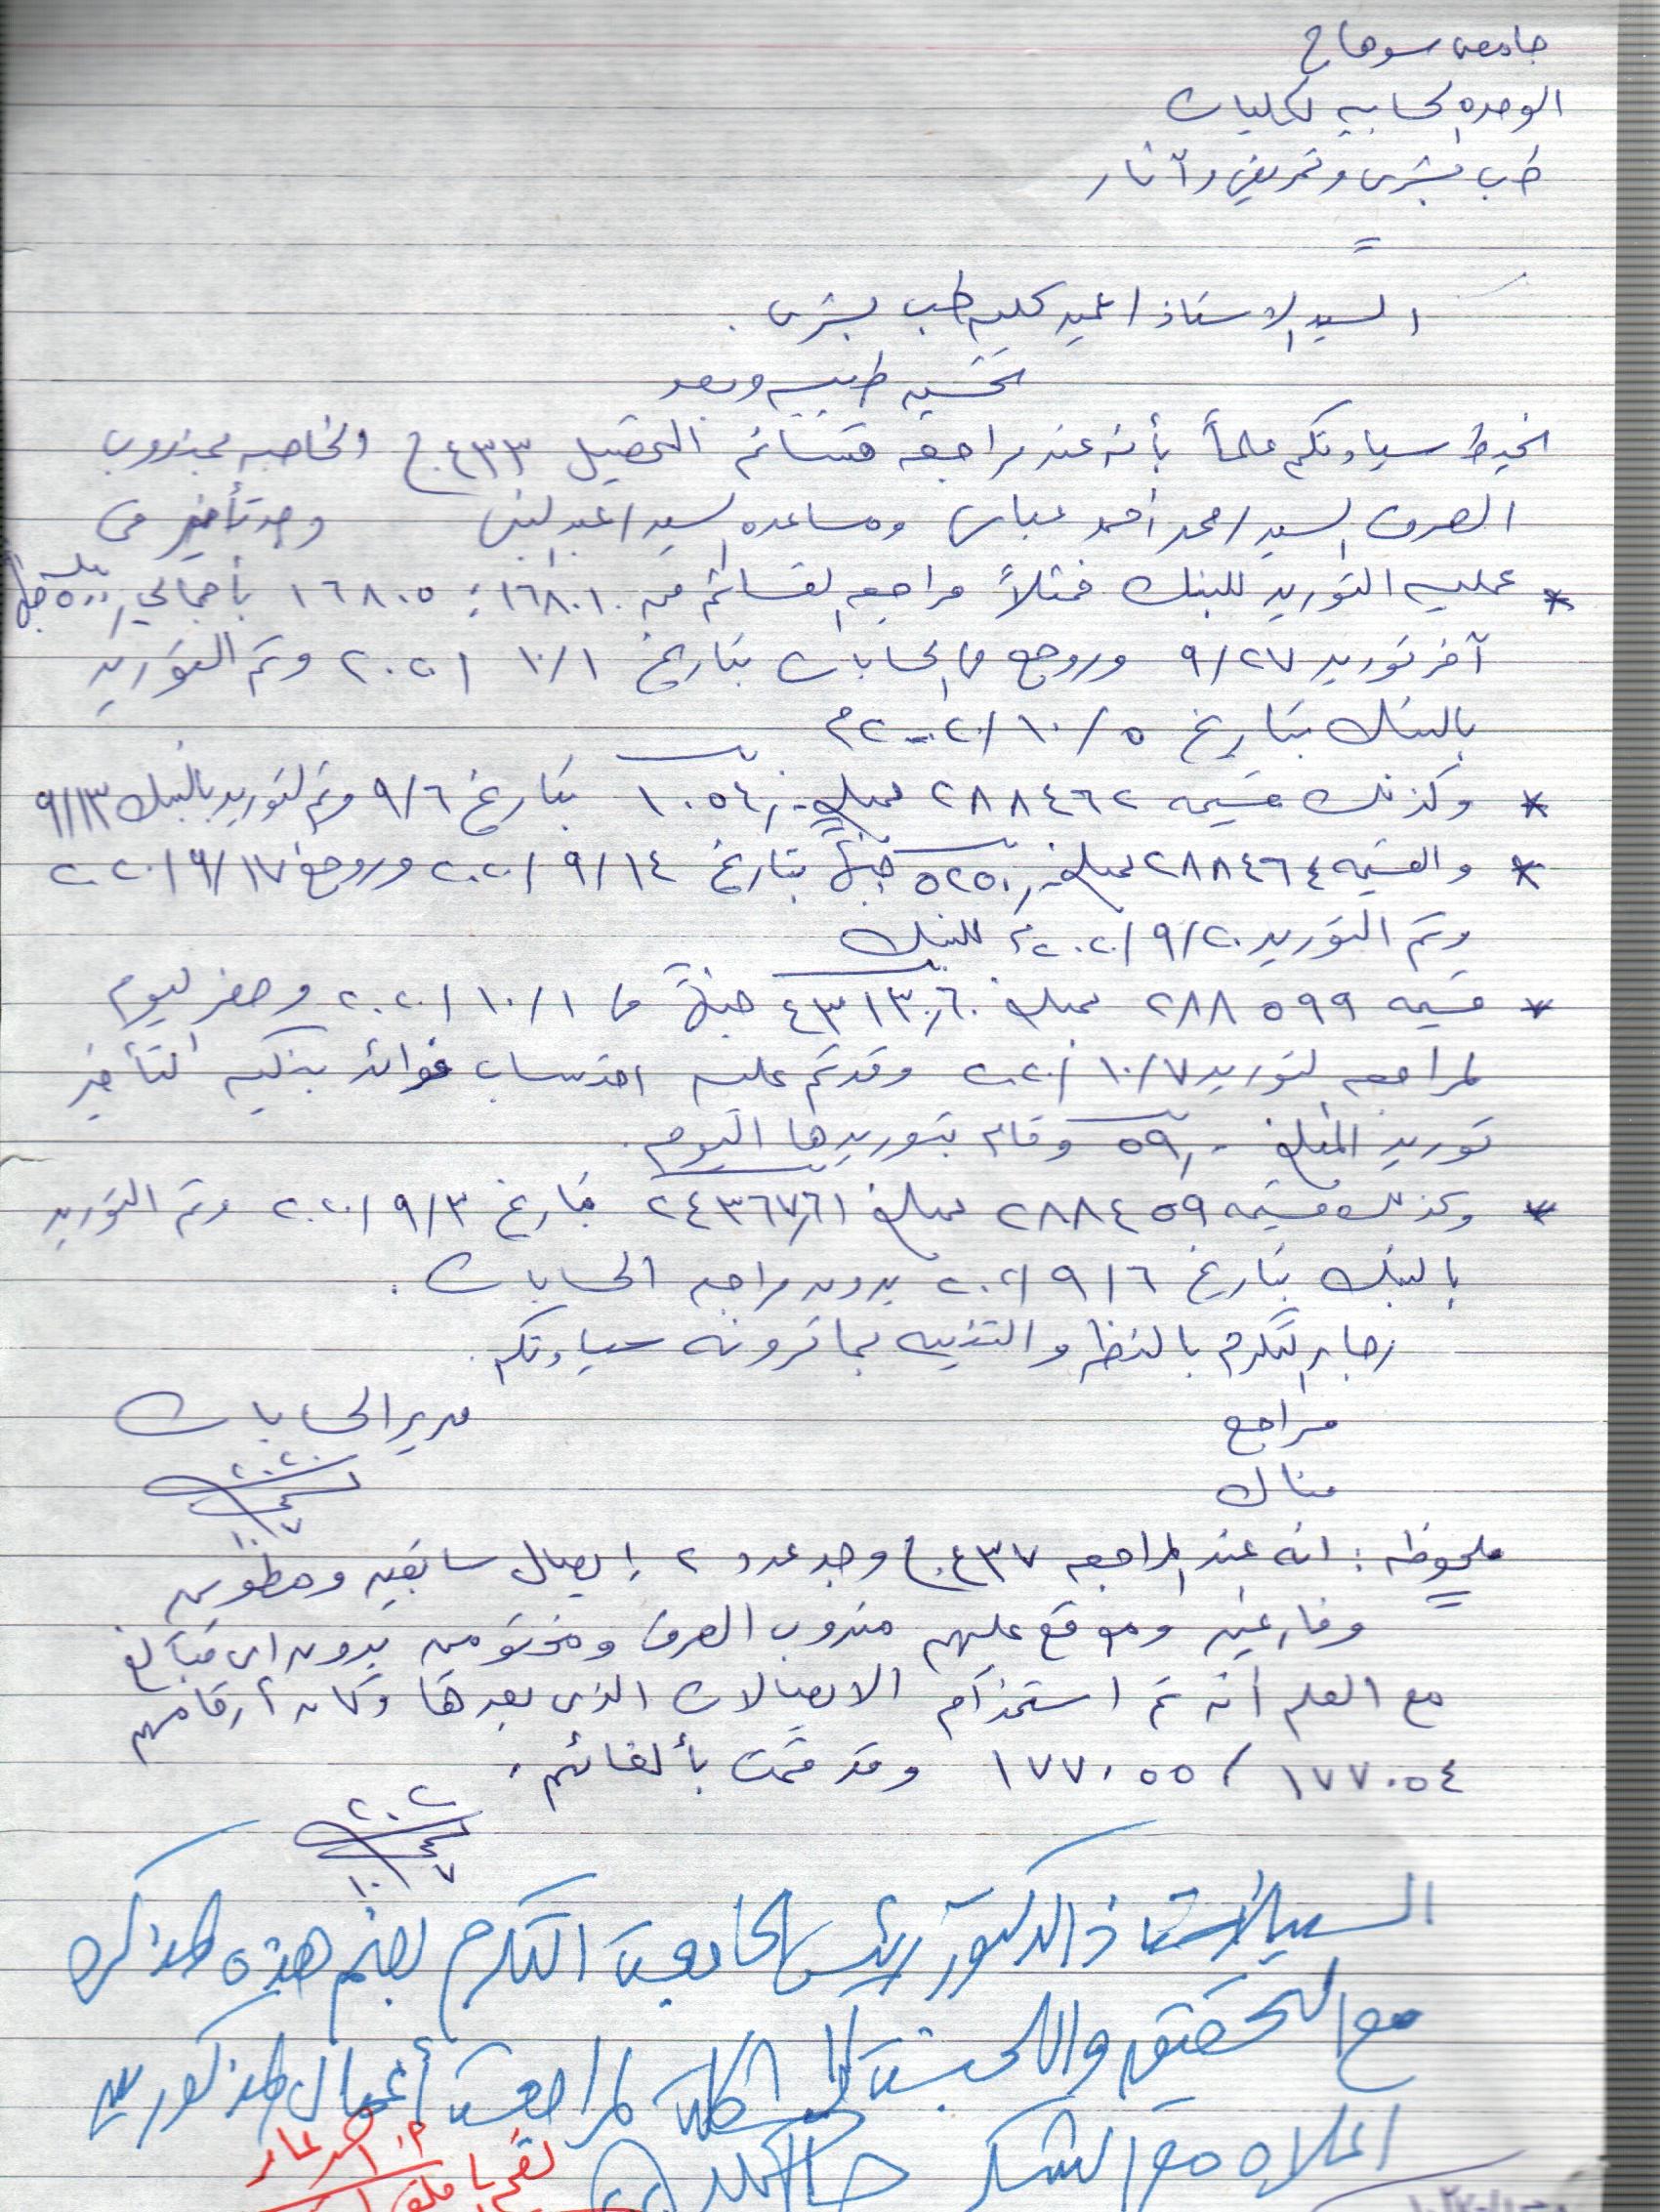 جامعة سوهاج
الوحده الحسابيه لكليات
طب بشرى وتمريض وآثار
السيد الاستاذ / عميد كليه طب بشرى .
تحيه طيبه وبعد
نحيط سيادتكم علماً بأنه عند مراجعه قسائم التحصيل ٤٣٣ ع.ح والخاصه بمندوب
الصرف السيد / محمد احمد عباس ومساعده السيد / عبد النبى وجد تأخير فى
* عمليه التوريد للبنك فمثلاً مراجعه القسائم من ١٦٨٠١ : ١٦٨٠٥ بأجمالي
آخر توريد ٩/٢٧ وروجع فى الحسابات بتاريخ ١٠/١ / ٢٠٢٠ وتم التوريد
بالبنك بتاريخ ٥ / ١٠ / ٢٠٢٠ م
* وكذلك قسيمه ٢٨٨٤٦٢ بمبلغ ١٠٥٤٠ بتاريخ ٩/٦ وتم التوريد بالبنك ٩/١٣
* والقسيمه ٢٨٨٤٦٤ بمبلغ ٥٢٥٠ جنيهاً بتاريخ ١٤ / ٩ / ٢٠٢٠ وروجع ١٧ / ٩ / ٢٠٢٠
وتم التوريد ٢٠ / ٩ / ٢٠٢٠ م للبنك
* قسيمه ٢٨٨٥٩٩ بمبلغ جنيهاً فى ١ / ١٠ / ٢٠٢٠ وحضر اليوم
لمراجعه التوريد ٧ / ١٠ / ٢٠٢٠ وقد تم عليه احتساب فوائد بنكيه لتأخير
توريد المبلغ ٥٩ وقام بتوريدها اليوم .
* وكذلك قسيمه ٢٨٨٤٥٩ بمبلغ ٢٤٣٦٧,٦١ بتاريخ ٣ / ٩ / ٢٠٢٠ وتم التوريد
بالبنك بتاريخ ٦ / ٩ / ٢٠٢٠ بدون مراجعه الحسابات .
رجاء التكرم بالنظر والتنبيه بما ترونه سيادتكم .
مراجع مدير الحسابات
منال
ملحوظه : انه عند المراجعه ٤٣٧ ع.ح وجد عدد ٢ إيصال سابقين ومطويين
وفارغين وموقع عليهم مندوب الصرف ومختومين بدون اى مبالغ
مع العلم أنه تم استخدام الايصالات الذى بعدها وكان أرقامهم
١٧٧٠٥٤ / ١٧٧٠٥٥ وقد قمت بألغائهم .
السيد الأستاذ الدكتور رئيس الجامعة التكرم بضم هذه المذكره
مع التحقيق واللجنة المشكلة لمراجعة أعمال المذكورين
اعلاه مع الشكر